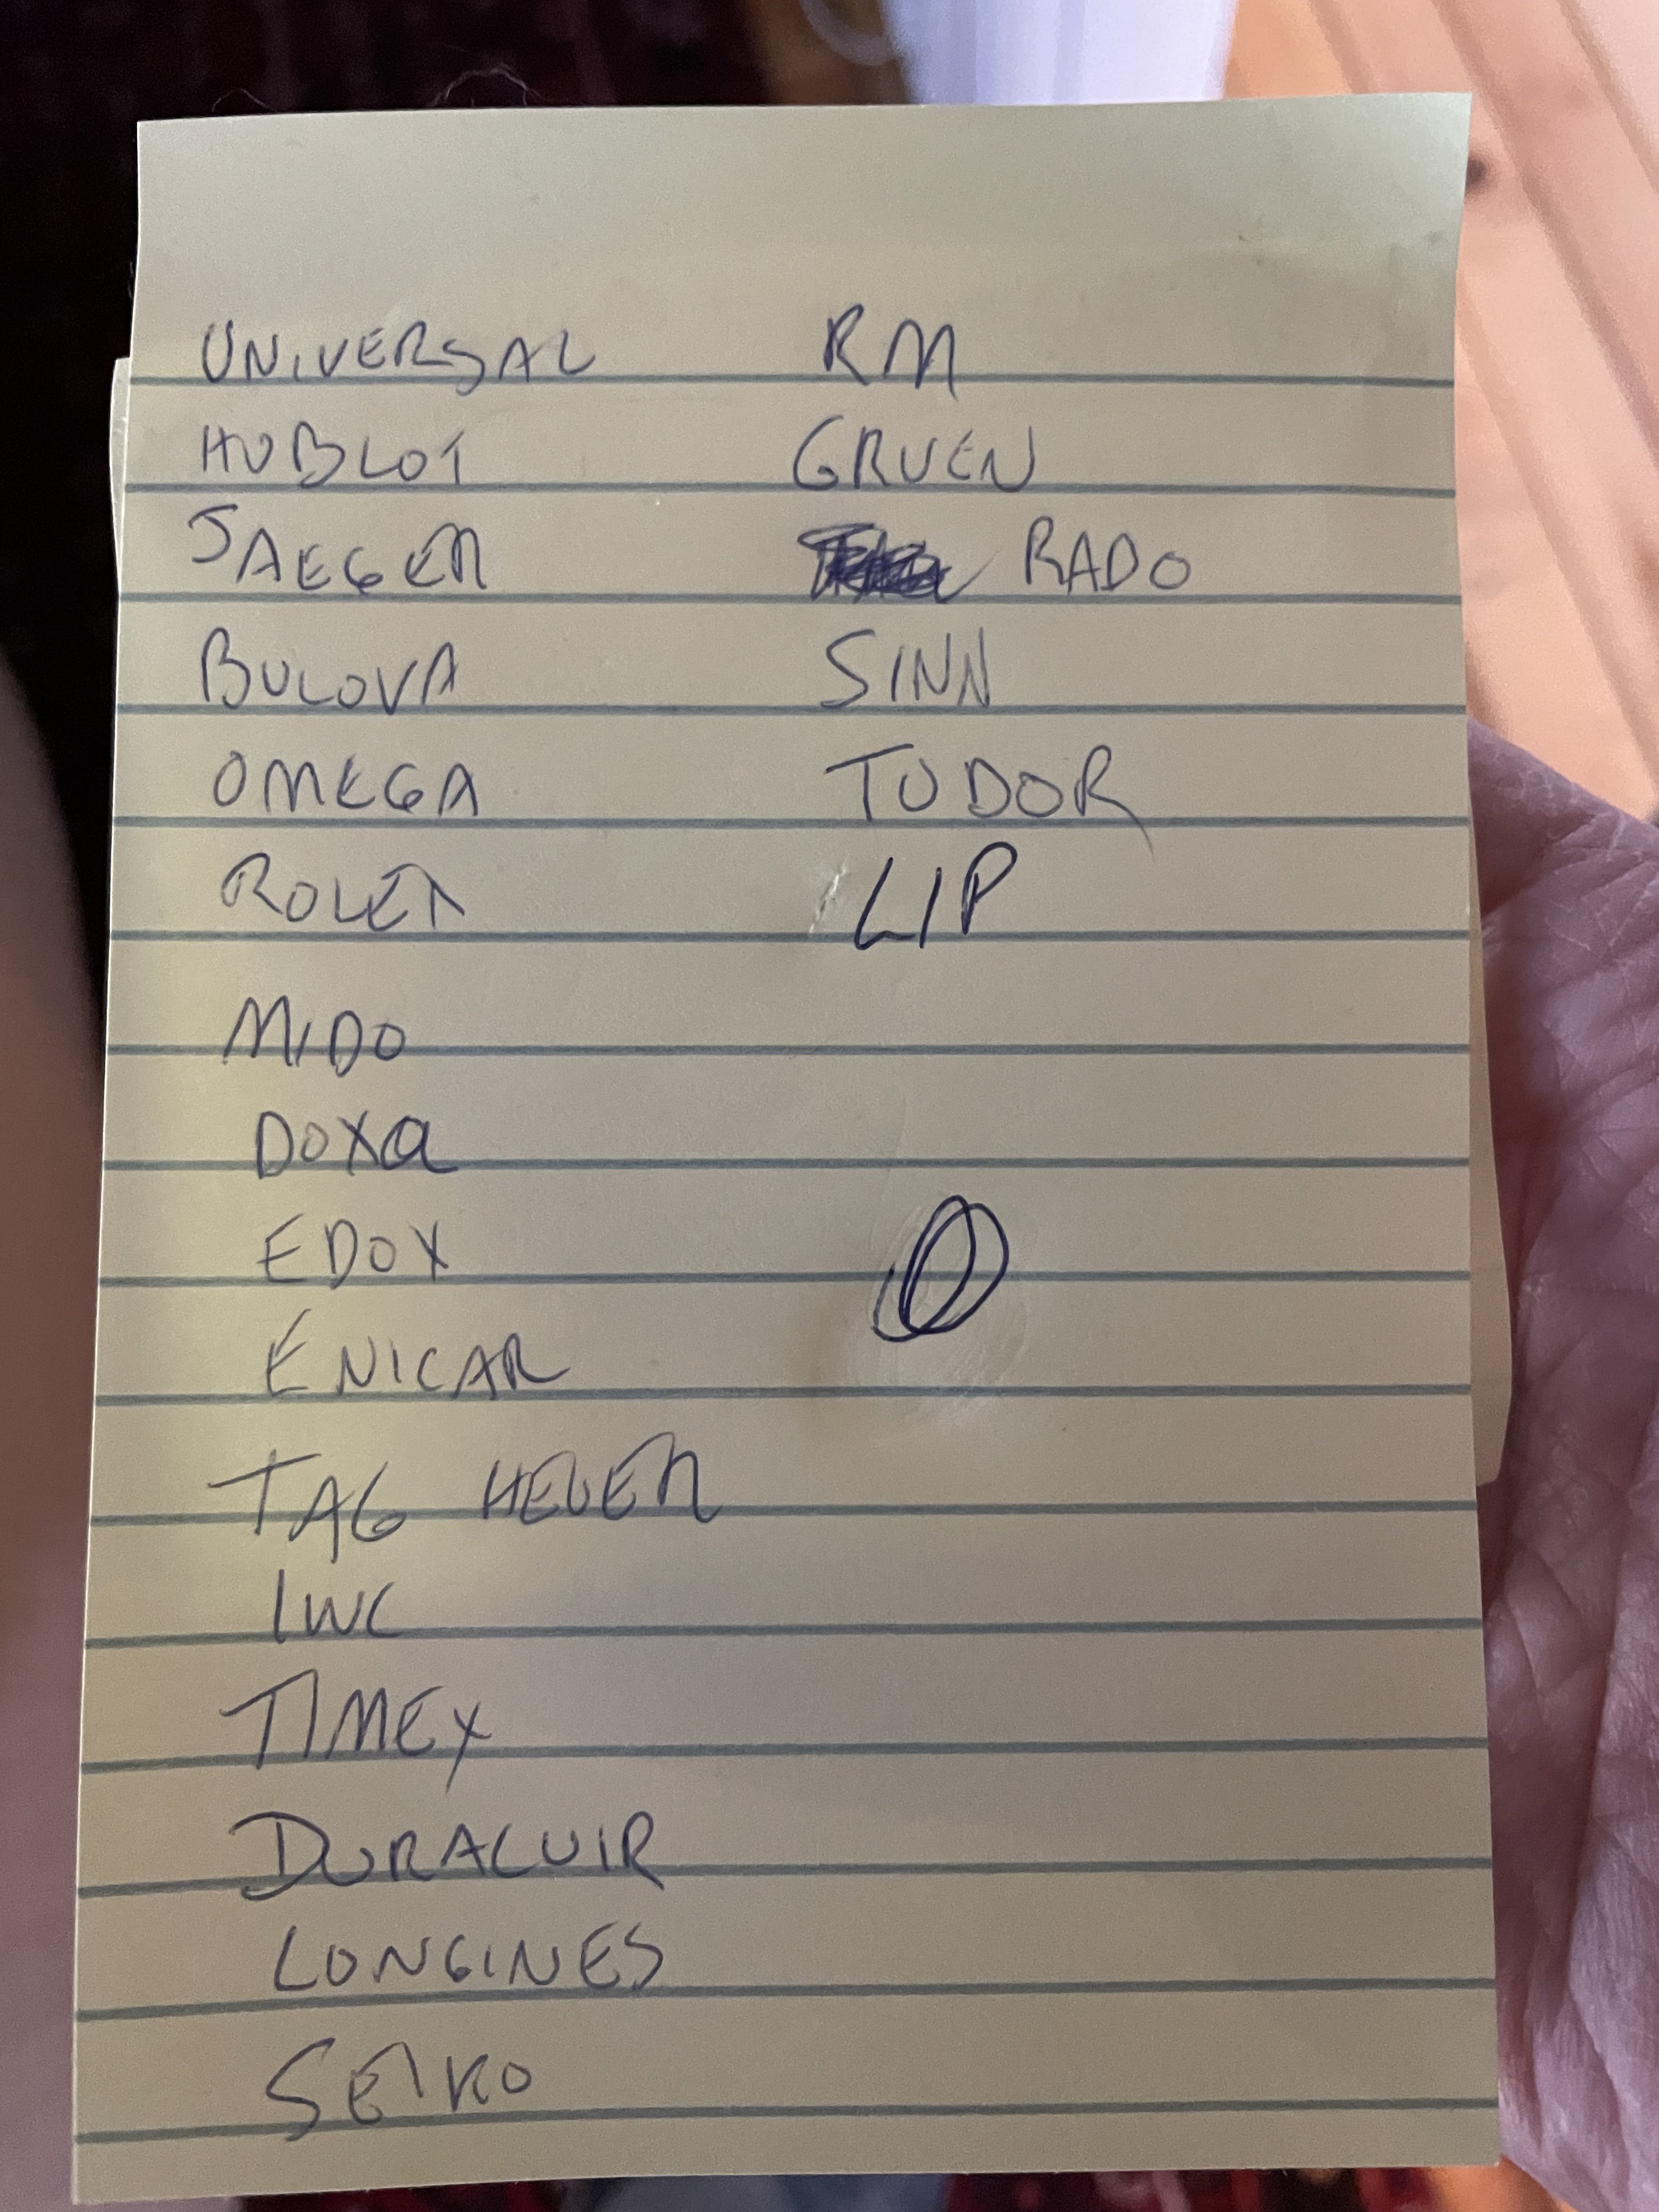 UNIVERSAL
HUBLOT
JAEGER
BULOVA
OMEGA
ROLEX
MIDO
DOXa
EDOX
ENICAR
TAG HEUER
IWC
TIMEX
DURACUIR
LONGINES
SEIKO
RM
GRUEN
RADO
SINN
TUDOR
LIP